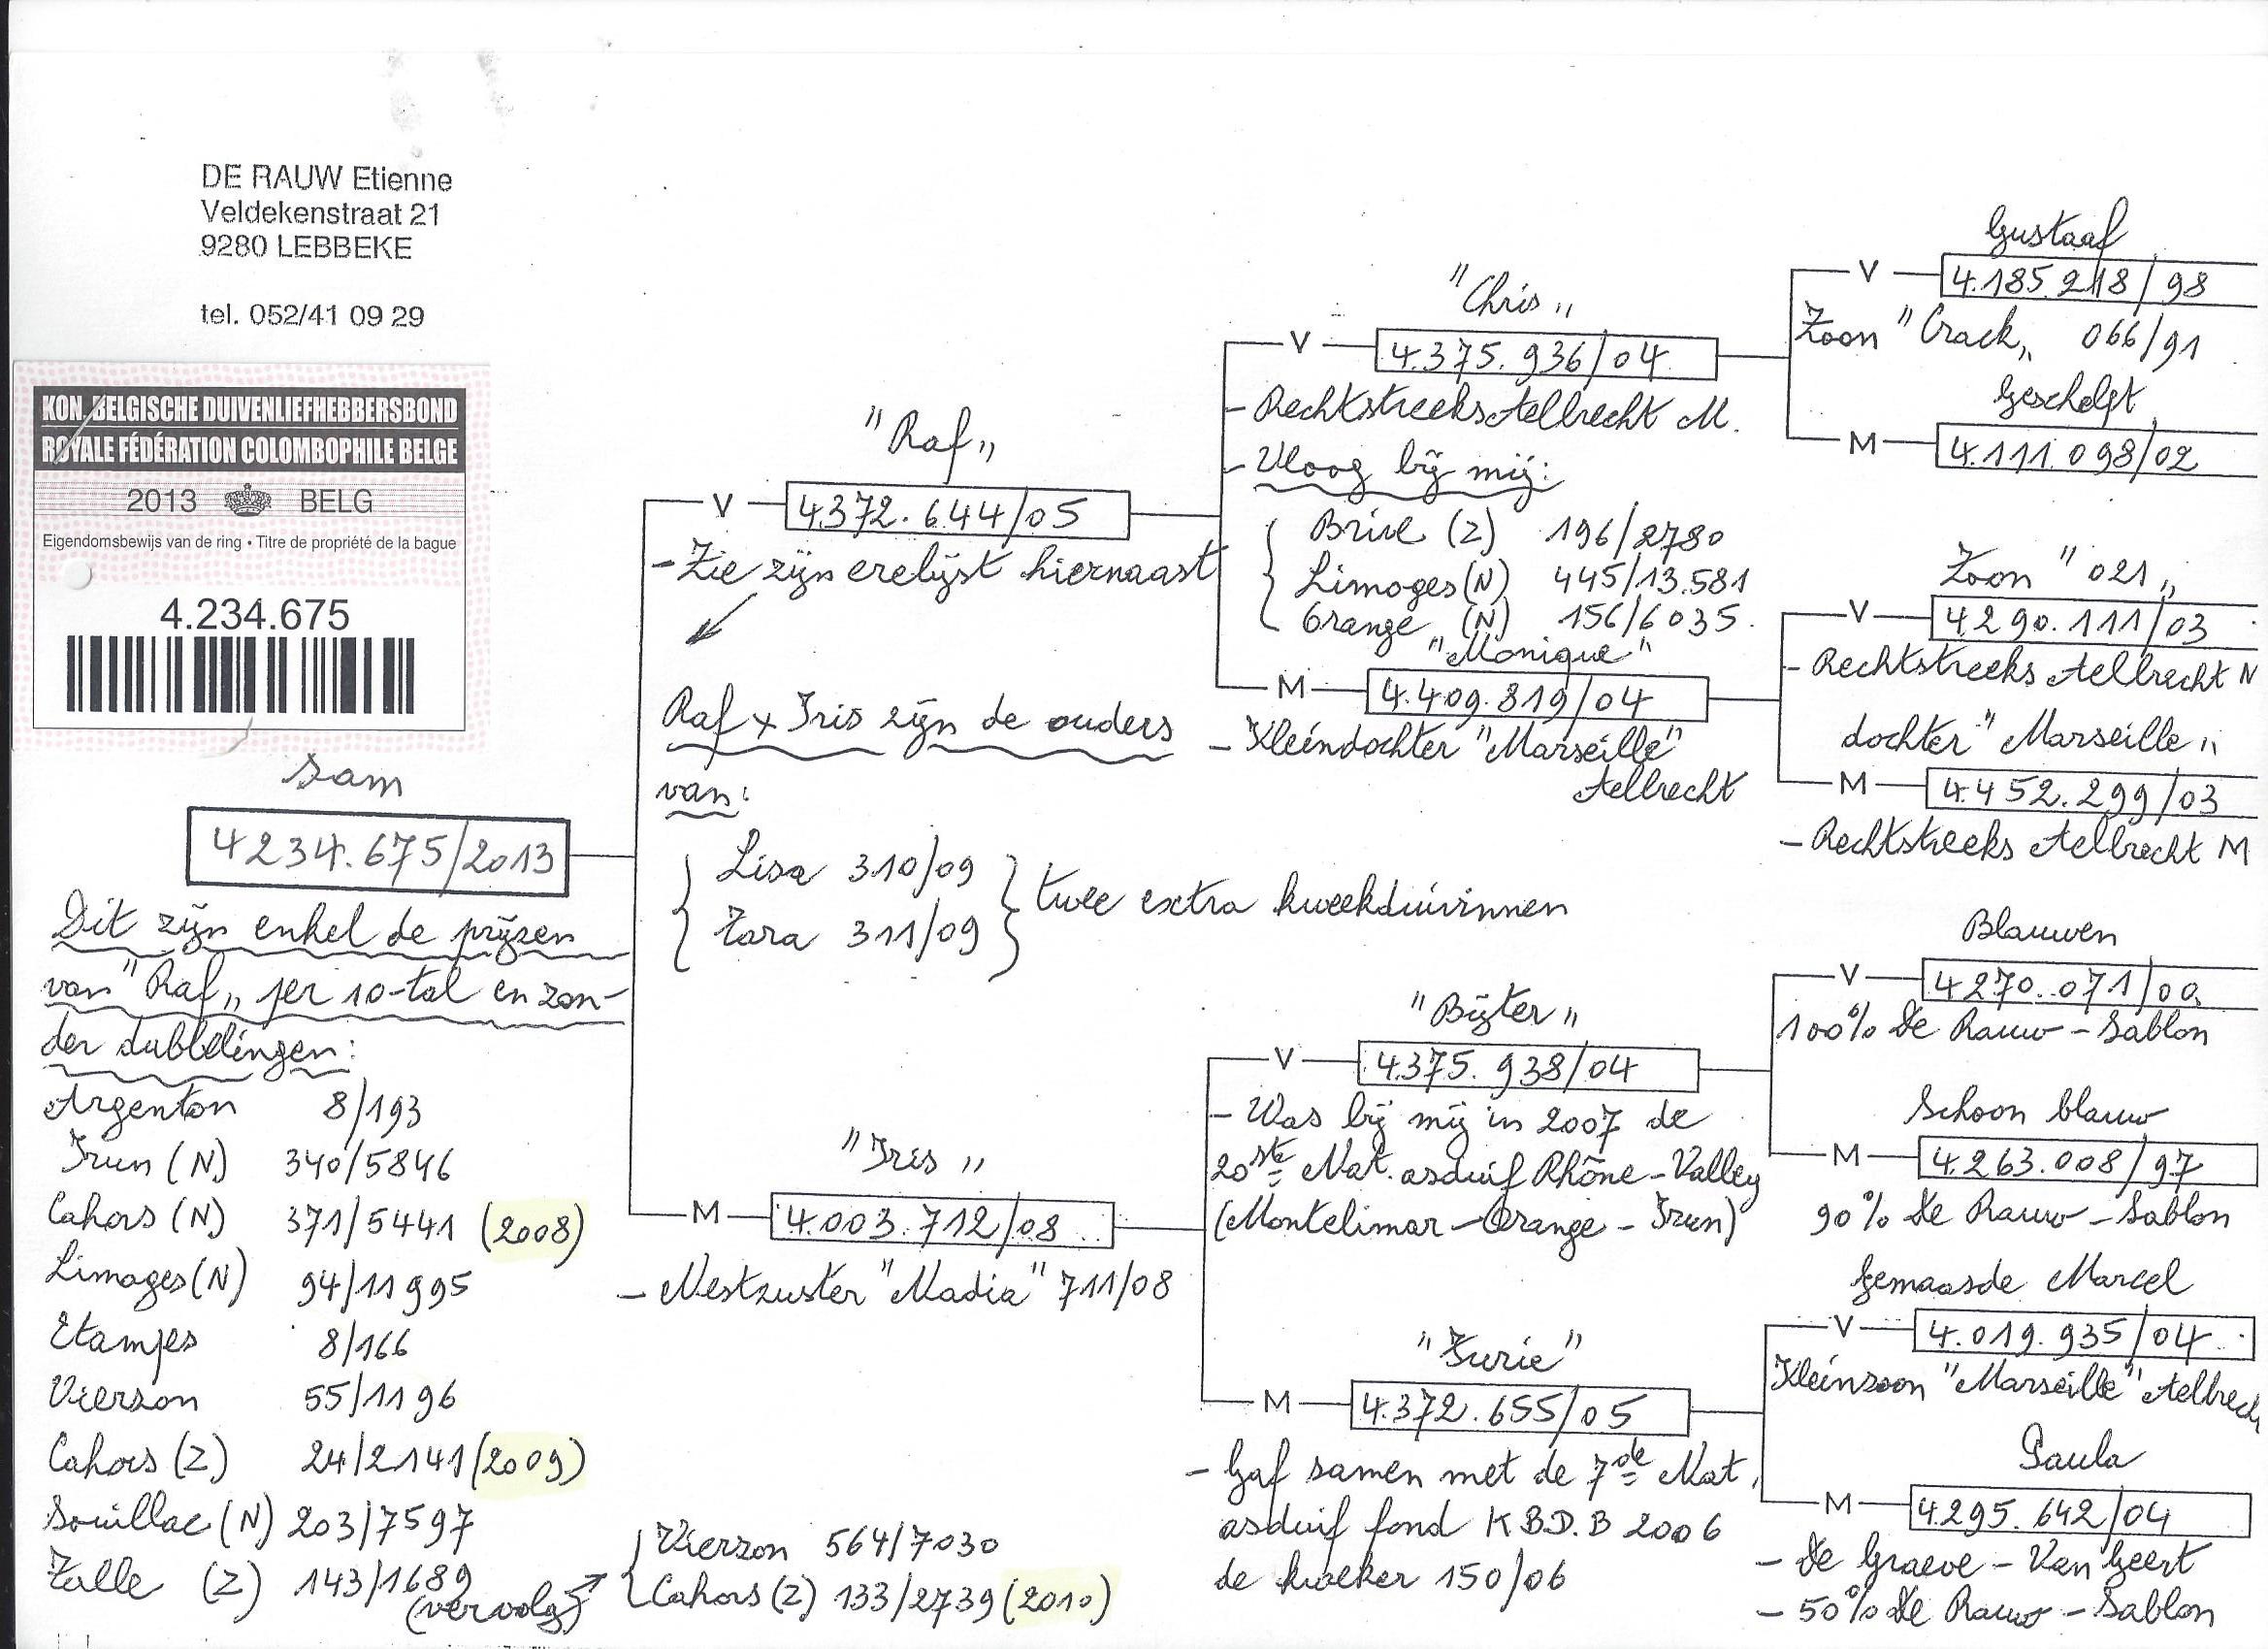 DE RAUW Etienne
Veldekenstraat 21
9280 LEBBEKE
tel. 052/41 09 29
KON. BELGISCHE DUIVENLIEFHEBBERSBOND
ROYALE FÉDÉRATION COLOMBOPHILE BELGE
2013 BELG
Eigendomsbewijs van de ring • Titre de propriété de la bague
4.234.675
Sam
4234.675/2013
Dit zijn enkel de prijzen
van "Raf" per 10-tal en zon-
der dubbelingen:
Argenton 8/193
Irun (N) 340/5846
Cahors (N) 371/5441 (2008)
Limoges (N) 94/11995
Etampes 8/166
Vierzon 55/1196
Cahors (Z) 24/2141 (2009)
Souillac (N) 203/7597
Tulle (Z) 143/1689
(vervolg)
Vierzon 564/7030
Cahors (Z) 133/2739 (2010)
"Raf"
V 4.372.644/05
- Zie zijn erelijst hiernaast
Raf x Iris zijn de ouders
van:
Lisa 310/09
Zara 311/09
twee extra kweekduivinnen
"Iris"
M 4.003.712/08
- Nestzuster "Nadia" 711/08
"Chris"
V 4.375.936/04
- Rechtstreeks Aelbrecht M.
- Vloog bij mij:
Brive (Z) 196/2780
Limoges (N) 445/13.581
Orange (N) 156/6035.
"Monique"
M 4.409.819/04
- Kleindochter "Marseille"
Aelbrecht
"Bijter"
V 4.375.938/04
- Was bij mij in 2007 de
20ste Nat. asduif Rhône-Valley
(Montelimar-Orange-Irun)
"Furie"
M 4.372.655/05
- Gaf samen met de 7de Nat.
asduif fond K.B.D.B 2006
de kweker 150/06
Gustaaf
V 4.185.218/98
Zoon "Crack" 066/91
Geschelpt
M 4.111.098/02
Zoon "021"
V 4.290.111/03
- Rechtstreeks Aelbrecht M
dochter "Marseille"
M 4.452.299/03
- Rechtstreeks Aelbrecht M
Blauwen
V 4.270.071/00
100% De Rauw-Sablon
Schoon blauw
M 4.263.008/97
90% De Rauw-Sablon
Gemaasde Marcel
V 4.019.935/04
Kleinzoon "Marseille" Aelbrech
Paula
M 4.295.642/04
- De Graeve - Van Geert
- 50% De Rauw-Sablon